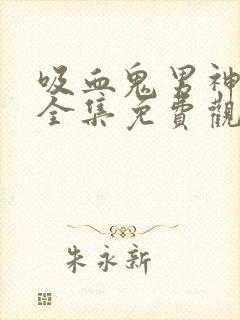 吸血鬼男神
全集免費觀
朱永新